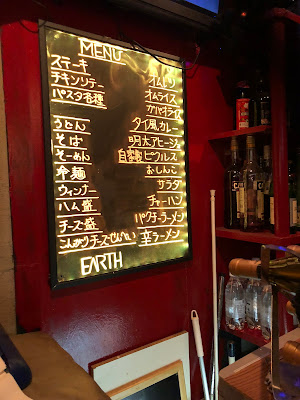 MENU
ステーキ
チキンソテー
パスタ各種
うどん
そば
そーめん
冷麺
ウィンナー
ハム盛
チーズ盛
オムレツ
オムライス
ガパオライス
タイ風カレー
明太アヒージョ
自家製ピクルス
おしんこ
サラダ
チャーハン
パクチーラーメン
辛ラーメン
EARTH